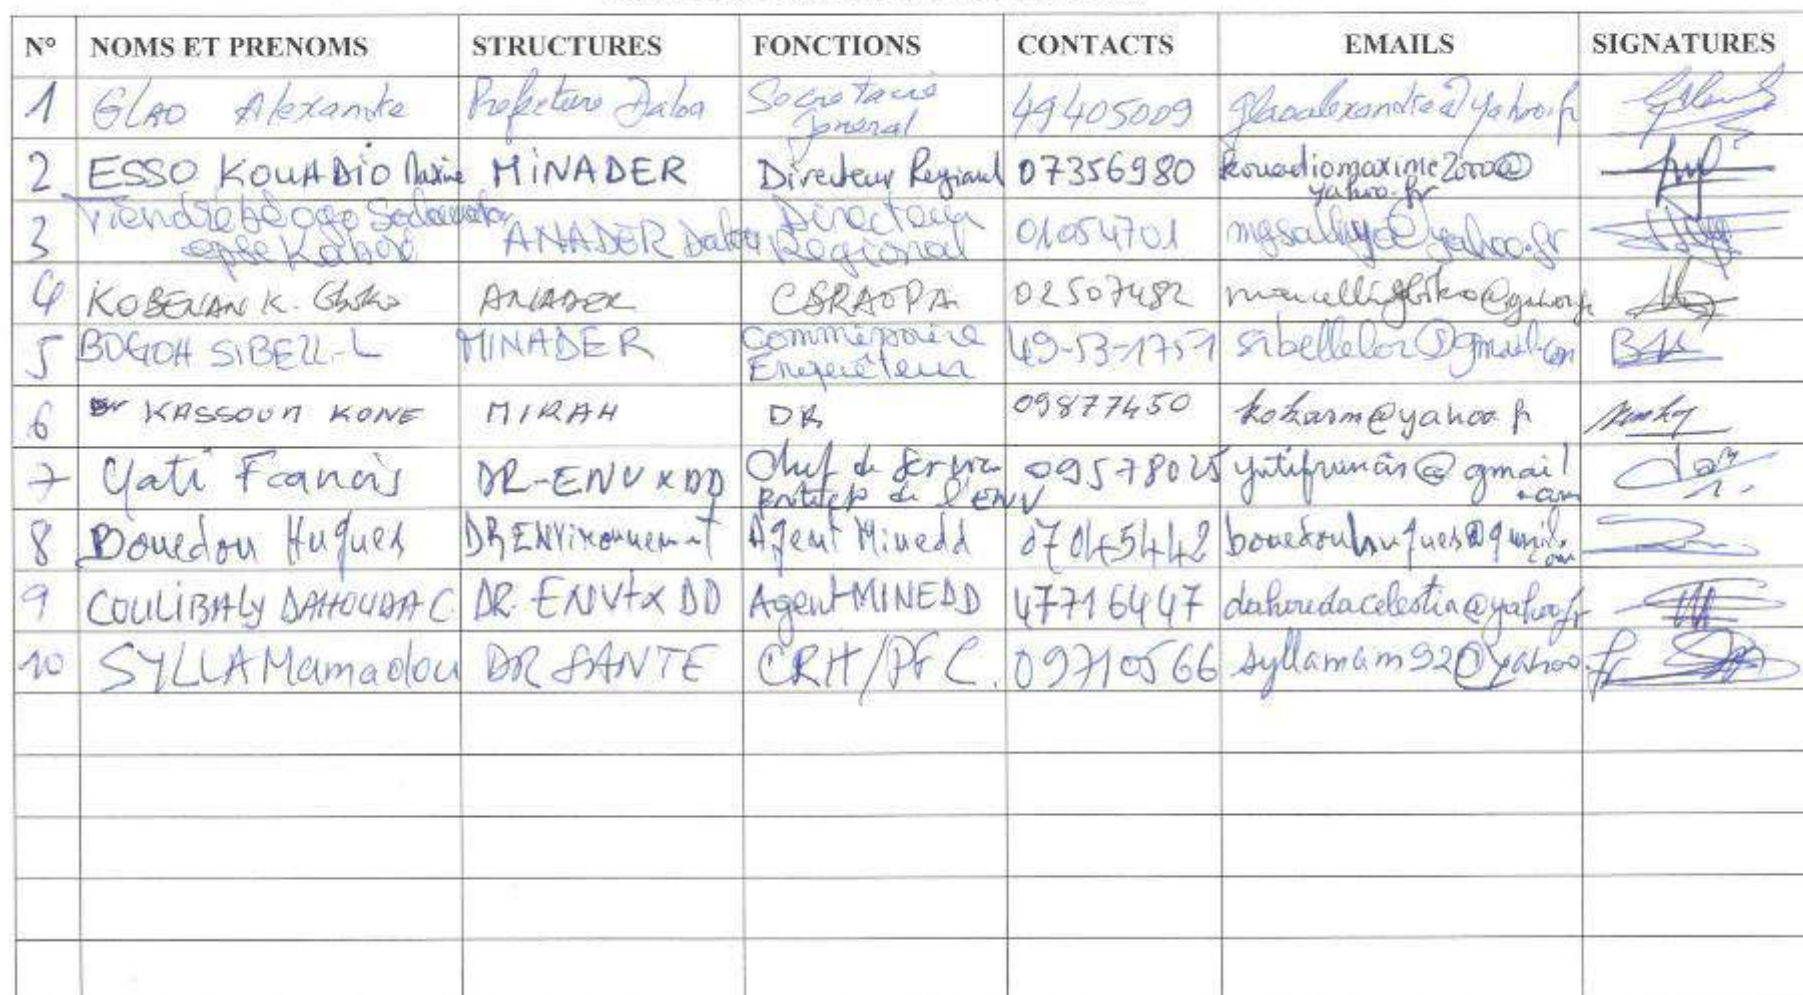 N° NOMS ET PRENOMS STRUCTURES FONCTIONS CONTACTS EMAILS SIGNATURES
1 GLAO Alexandre Prefecture Daloa Secretaire General 49405009 glaoalexandre@yahoo.fr
2 ESSO KOUADIO Maxime MINADER Directeur Regional 07356980 kouadiomaxime2000@yahoo.fr
3 Tiendrébéogo epse Kaboré ANADER Daloa Directeur Regional 01054701
4 KOBENAN K. ANADER 02507482
5 BOGOH SIBELL-L MINADER Commissaire Enquêteur 49-53-1751 sibellelor@gmail.com
6 KASSOUM KONE MIRAH DR 09877450 kokasm@yahoo.fr
7 Yati Francis DR-ENV x DD Chef de Service de l'ENV 09578025 yatifrancis@gmail.com
8 Bouedou Hugues DR ENVironnement Agent Minedd 07045442 bouedouhugues@gmail.com
9 COULIBALY DAHOUDA C. DR-ENVtx DD Agent MINEDD 47716447 dahoudacelestin@yahoo.fr
10 SYLLA Mamadou DR SANTE CRH/PFC. 09710566 syllamam92@yahoo.fr